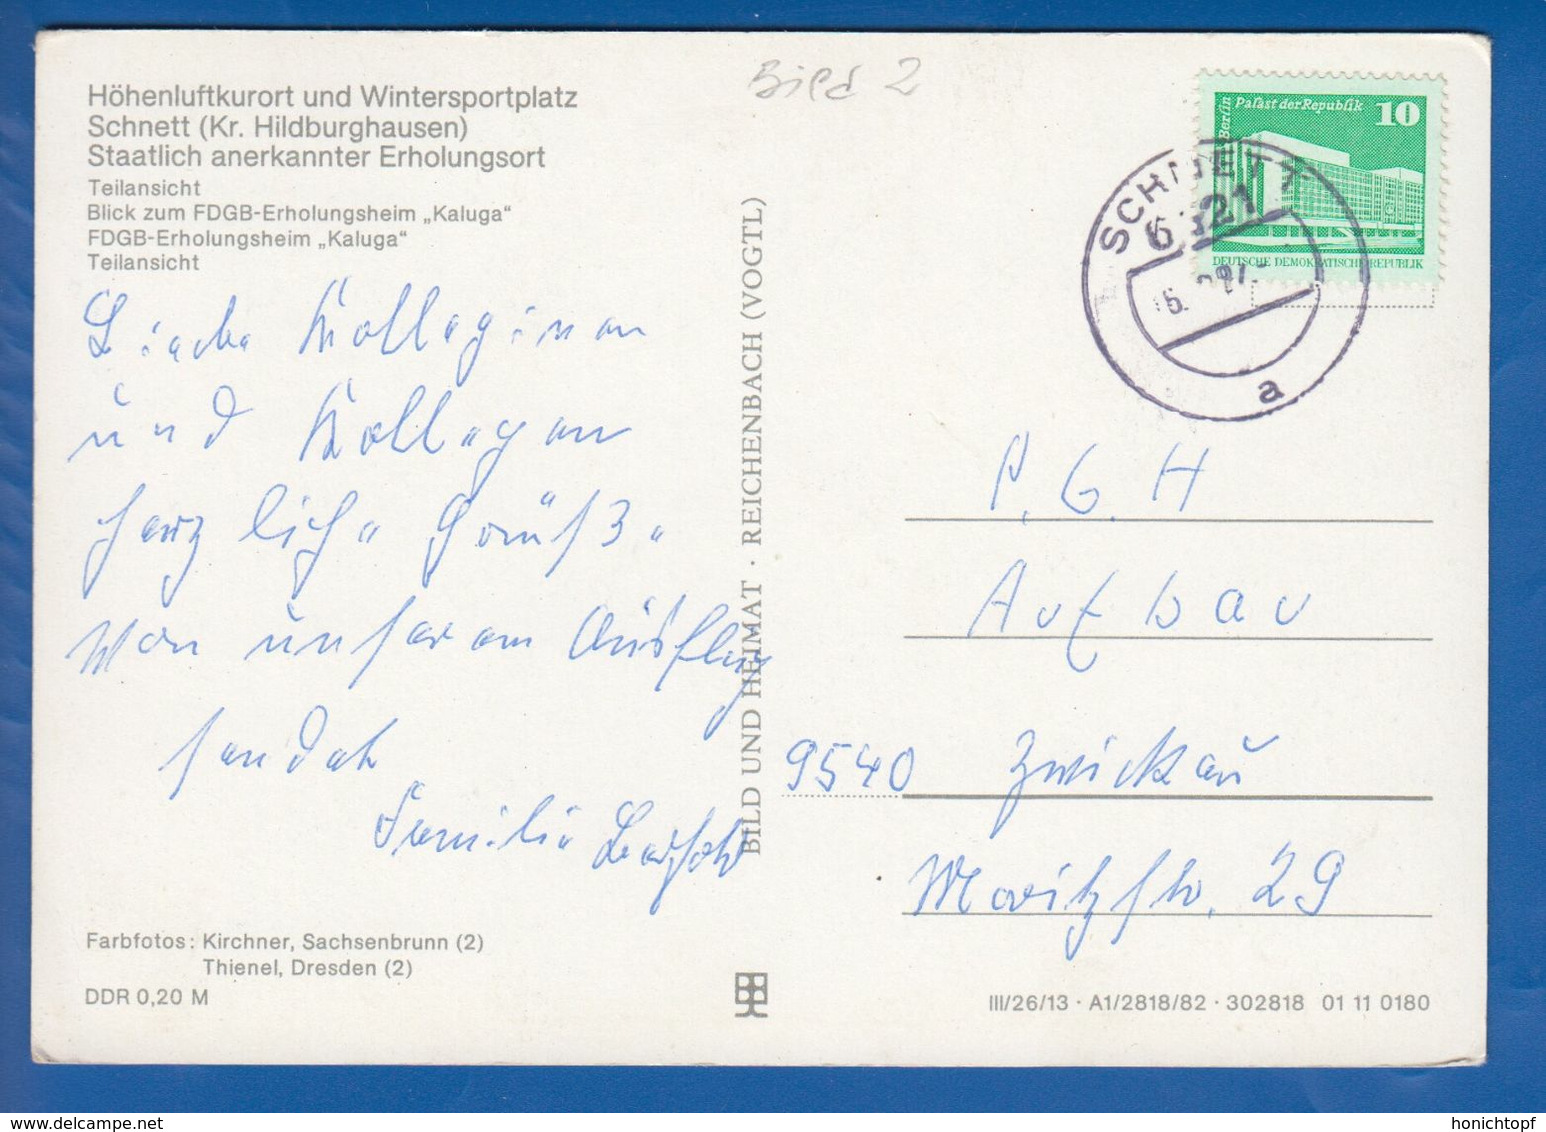 Höhenluftkurort und Wintersportplatz
Schnett (Kr. Hildburghausen)
Staatlich anerkannter Erholungsort
Teilansicht
Blick zum FDGB-Erholungsheim „Kaluga“
FDGB-Erholungsheim „Kaluga“
Teilansicht
Liebe Kolleginen
und Kollegen
herzliche Grüße
von unserem Ausflug
sendet
Familie
Farbfotos: Kirchner, Sachsenbrunn (2)
Thienel, Dresden (2)
DDR 0,20 M
BILD UND HEIMAT · REICHENBACH (VOGTL)
Bild 2
Berlin
Palast der Republik 10
DEUTSCHE DEMOKRATISCHE REPUBLIK
SCHNETT
a
P. G. H
Aufbau
9540 Zwickau
Moritzstr. 29
III/26/13 · A1/2818/82 · 302818 01 11 0180
www.delcampe.net
honichtopf